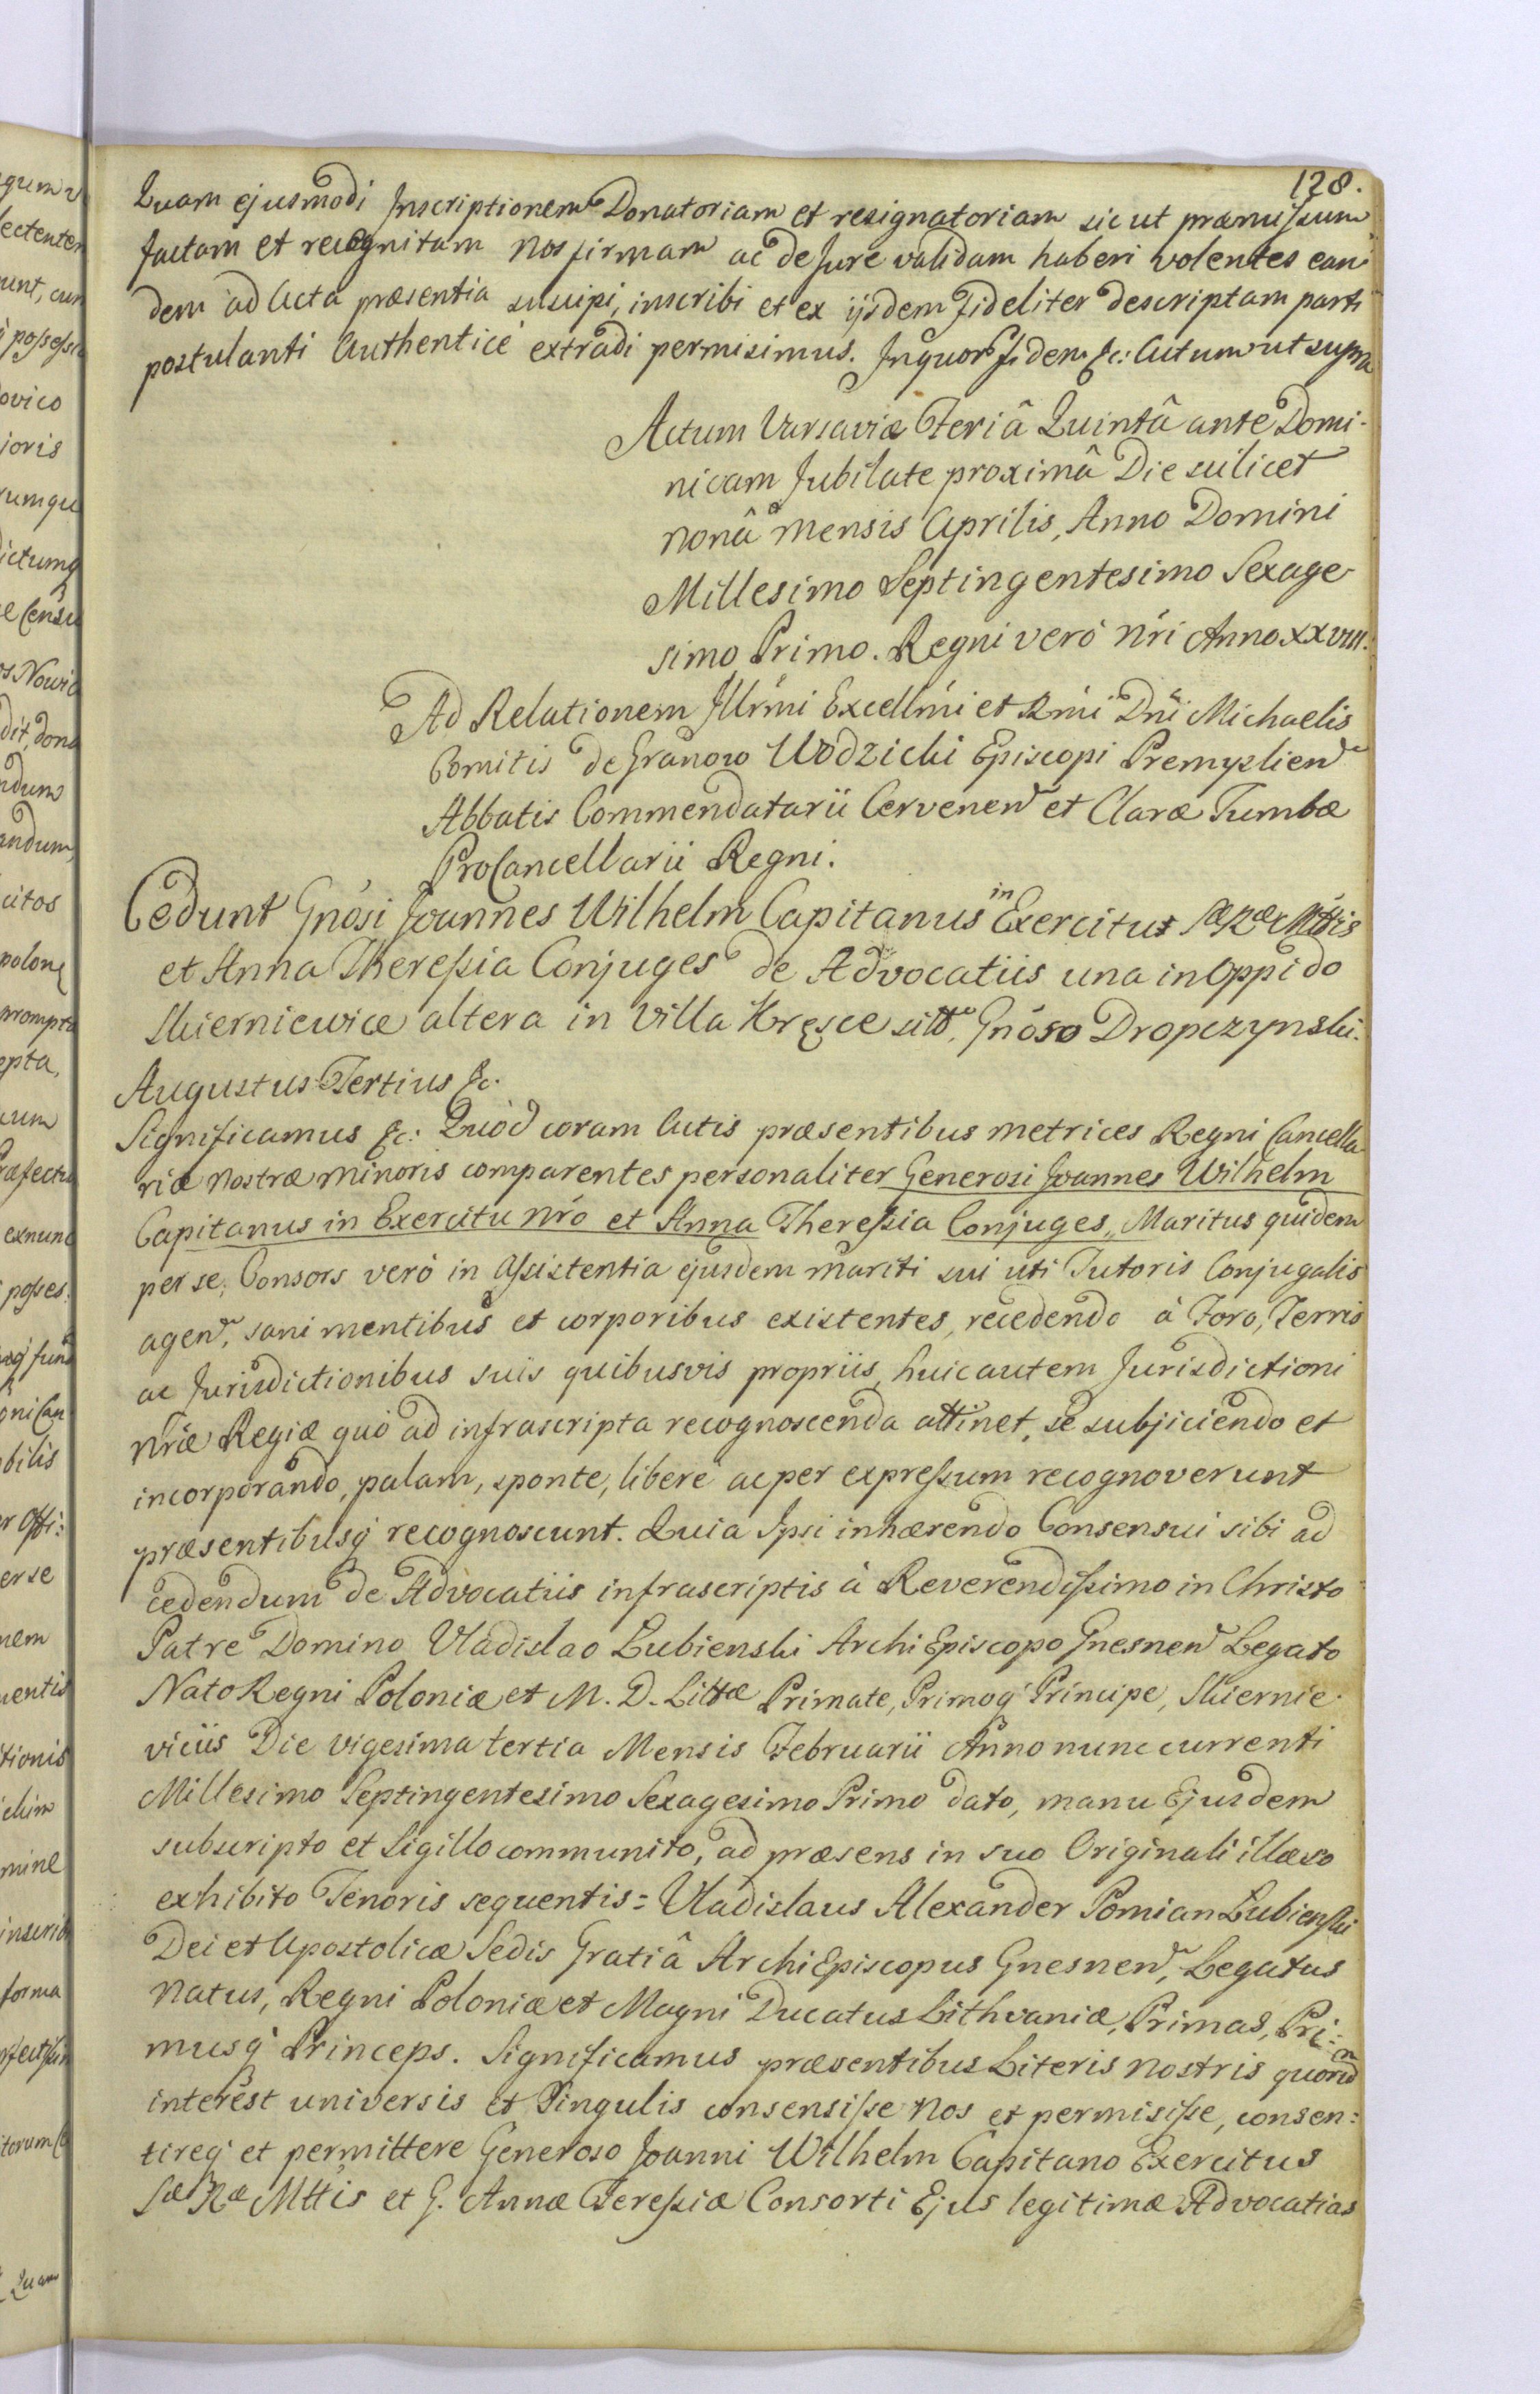 128.
Quam ejusmodi Inscriptionem Donatoriam et resignatoriam sicut præmissum
factam et recognitam nos firmam ac de Jure validam haberi volentes ean
dem ad Acta præsentia suscipi, inscribi et ex ijsdem fideliter descriptam parti
postulanti Authenticè extradi permisimus. In quor fidem &c: Actum ut supra
Actum Varsaviæ Feriâ Quintâ ante Domi-
nicam Jubilate proximâ Die scilicet
nonâ mensis Aprilis, Anno Domini
Millesimo Septingentesimo Sexage-
simo Primo. Regni verò nri Anno XXVIII.
Ad Relationem Illrmi Excellmi et Rmi Dni Michaelis
Comitis de Granow Wodzicki Episcopi Premyslien
Abbatis Commendatarii Cervenen et Claræ Tumbæ
ProCancellarii Regni.
Cedunt Gnosi Joannes Wilhelm Capitanus in Exercitus SæRæ Mttis
et Anna Theressia Conjuges de Advocatiis una in Oppido
Skierniewice altera in Villa Kręsce sitt. Gnoso Dropczynski.
Augustus Tertius &c.
Significamus &c: Quòd coram Actis præsentibus metrices Regni Cancella
riæ nostræ minoris comparentes personaliter Generosi Joannes Wilhelm
Capitanus in Exercitu nro et Anna Theressia Conjuges, Maritus quidem
per se, Consors verò in assistentia ejusdem mariti sui uti Tutoris Conjugalis
agen, sani mentibus et corporibus existentes, recedendo à Foro, Terris
ac Jurisdictionibus suis quibusvis propriis, huic autem Jurisdictioni
nræ Regiæ quò ad infrascripta recognoscenda attinet, se subjiciendo et
incorporando, palam, sponte, liberè ac per expressum recognoverunt
præsentibusq recognoscunt. Quia Ipsi inhærendo Consensui sibi ad
cedendum de Advocatiis infrascriptis à Reverendissimo in Christo
Patre Domino Vladislao Łubienski ArchiEpiscopo Gnesnen Legato
Nato Regni Poloniæ et M. D. Littæ Primate, Primoq Principe, Skiernie-
viciis Die vigesima tertia Mensis Februarii Anno nunc currenti
Millesimo Septingentesimo Sexagesimo Primo dato, manu Ejusdem
subscripto et Sigillo communito, ad præsens in suo Originali illæso
exhibito Tenoris sequentis = Vladislaus Alexander Pomian Łubienski
Dei et Apostolicæ Sedis Gratiâ ArchiEpiscopus Gnesnen, Legatus
Natus, Regni Poloniæ et Magni Ducatus Lithvaniæ, Primas, Pri:
musq Princeps. Significamus præsentibus Literis nostris quorum
interest universis et Singulis consensisse Nos et permisisse, consen:
tireq et permittere Generoso Joanni Wilhelm Capitano Exercitus
Sæ Ræ Mttis et G. Annæ Teressiæ Consorti Ejus legitimæ Advocatias